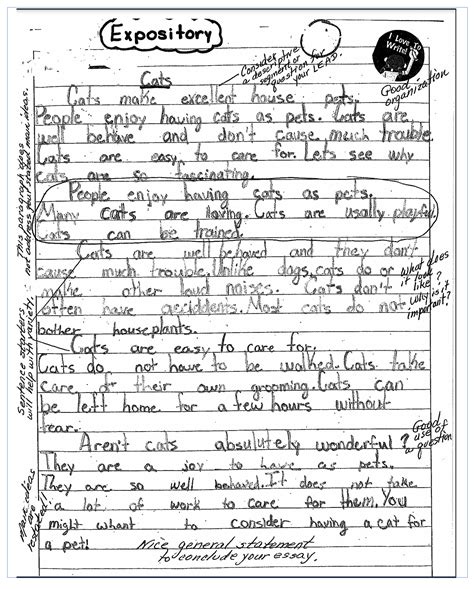 Expository
I Love To
Write!
Cats
Consider
a descriptive
segment or
question for
your LEAD.
Good
organization
Cats make excellent house pets.
People enjoy having cats as pets. Cats are
well behave and don't cause much trouble.
Cats are easy to care for. Lets see why
cats are so fascinating.
People enjoy having cats as pets.
Many cats are loving. Cats are usally playful.
Cats can be trained.
This paragraph needs
more ideas.
Cats are well behaved and they don't
cause much trouble. Unlike dogs, cats do
make other loud noises. Cats don't
often have accidents. Most cats do not
bother houseplants.
what does
it look
like?
Why is it
important?
Sentence starters
will help with variety.
Cats are easy to care for.
Cats do not have to be walked. Cats take
care of their own grooming. Cats can
be left home for a few hours without
fear.
Aren't cats absolutely wonderful?
They are a joy to have as pets.
They are so well behaved. It does not take
a lot of work to care for them. You
might whant to consider having a cat for
a pet!
Good
use of
a question
ideas
are
restated!!
Nice general statement
to conclude your essay.